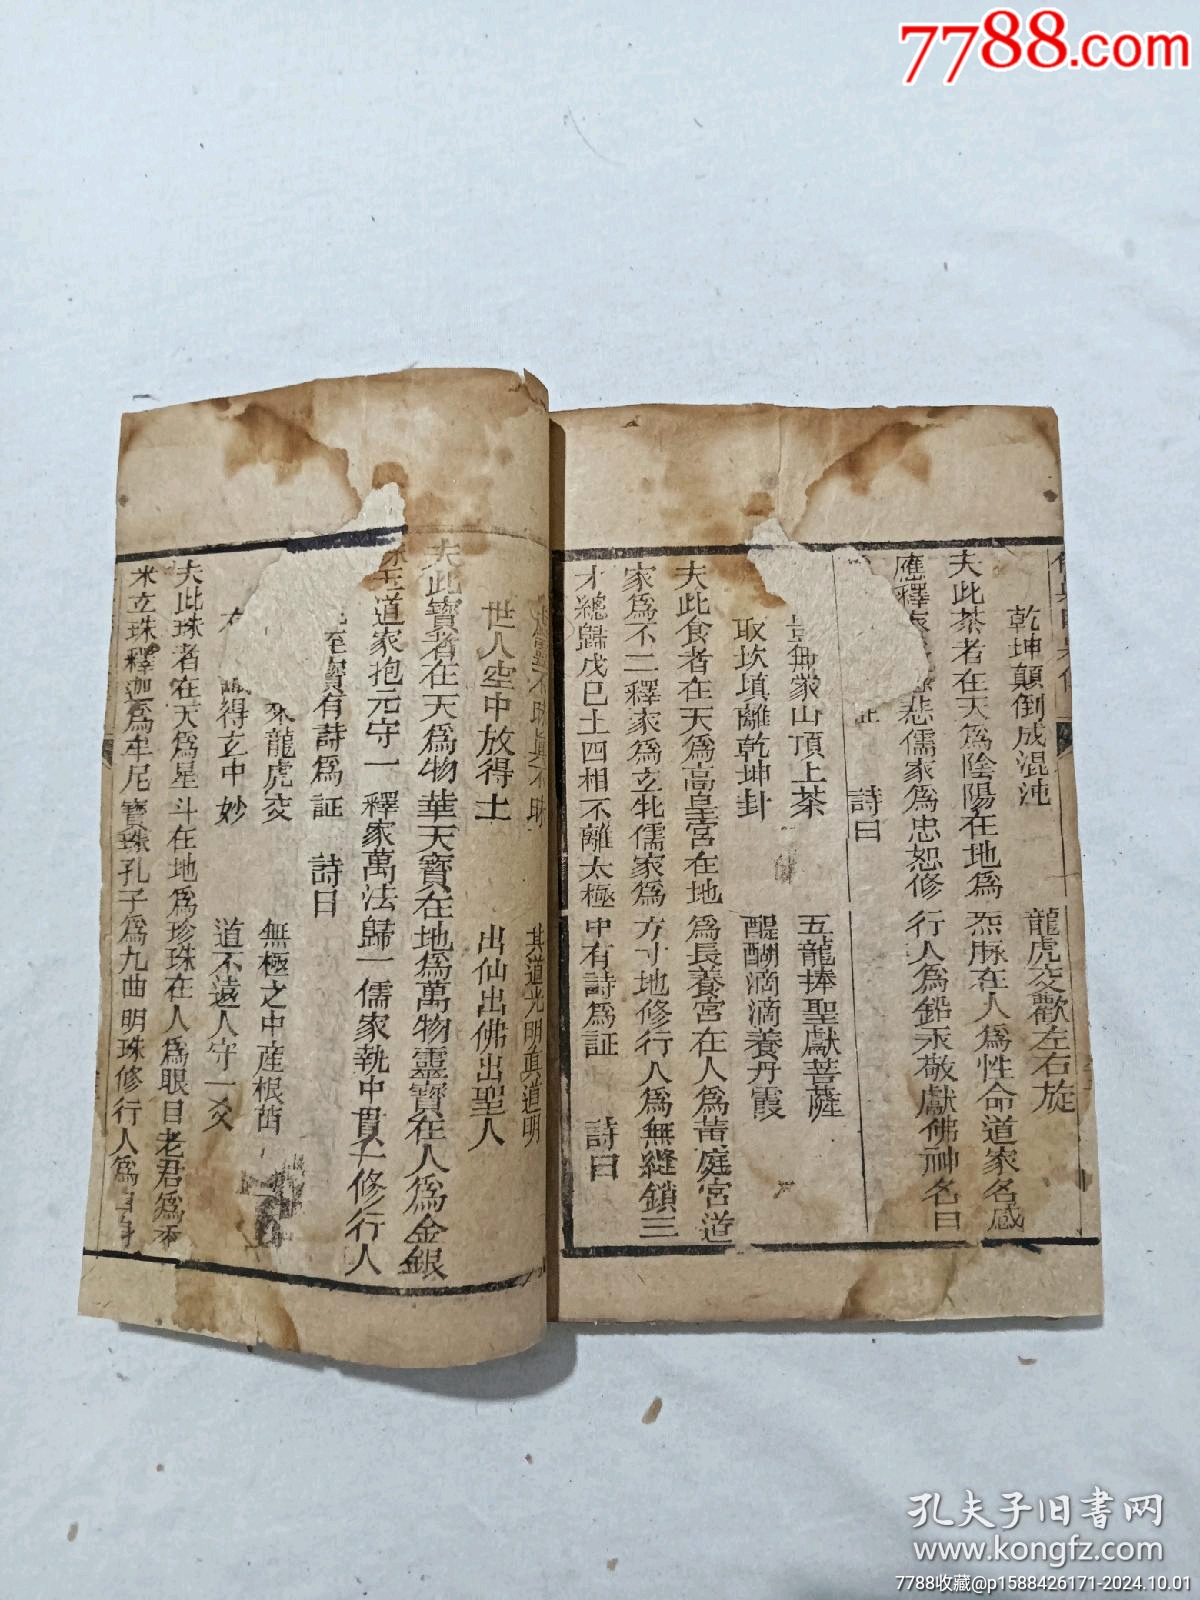 7788.com
乾坤顛倒成混沌 龍虎交歡左右旋
夫此茶者在天為陰陽在地為炁脈在人為性命道家名感
應釋家 悲儒家為忠恕修行人為鉛汞敬獻佛神名曰
証 詩曰
蒙山頂上茶 五龍捧聖獻菩薩
取坎填離乾坤卦 醍醐滴滴養丹霞
夫此食者在天為高皇宮在地為長養宮在人為黃庭宮道
家為不二釋家為玄牝儒家為方寸地修行人為無縫鎖三
才總歸戊巳土四相不離太極中有詩為証 詩曰
其道光明真道明
世人空中放得土 出仙出佛出聖人
夫此寶者在天為物華天寶在地為萬物靈寶在人為金銀
珠玉道家抱元守一釋家萬法歸一儒家執中貫一修行人
至寶有詩為証 詩曰
來龍虎交 無極之中産根苗
得玄中妙 道不遠人守一爻
夫此珠者在天為星斗在地為珍珠在人為眼目老君為黍
米玄珠釋迦為牟尼寶珠孔子為九曲明珠修行人為自身
孔夫子旧书网
www.kongfz.com
7788收藏@p1588426171-2024.10.01